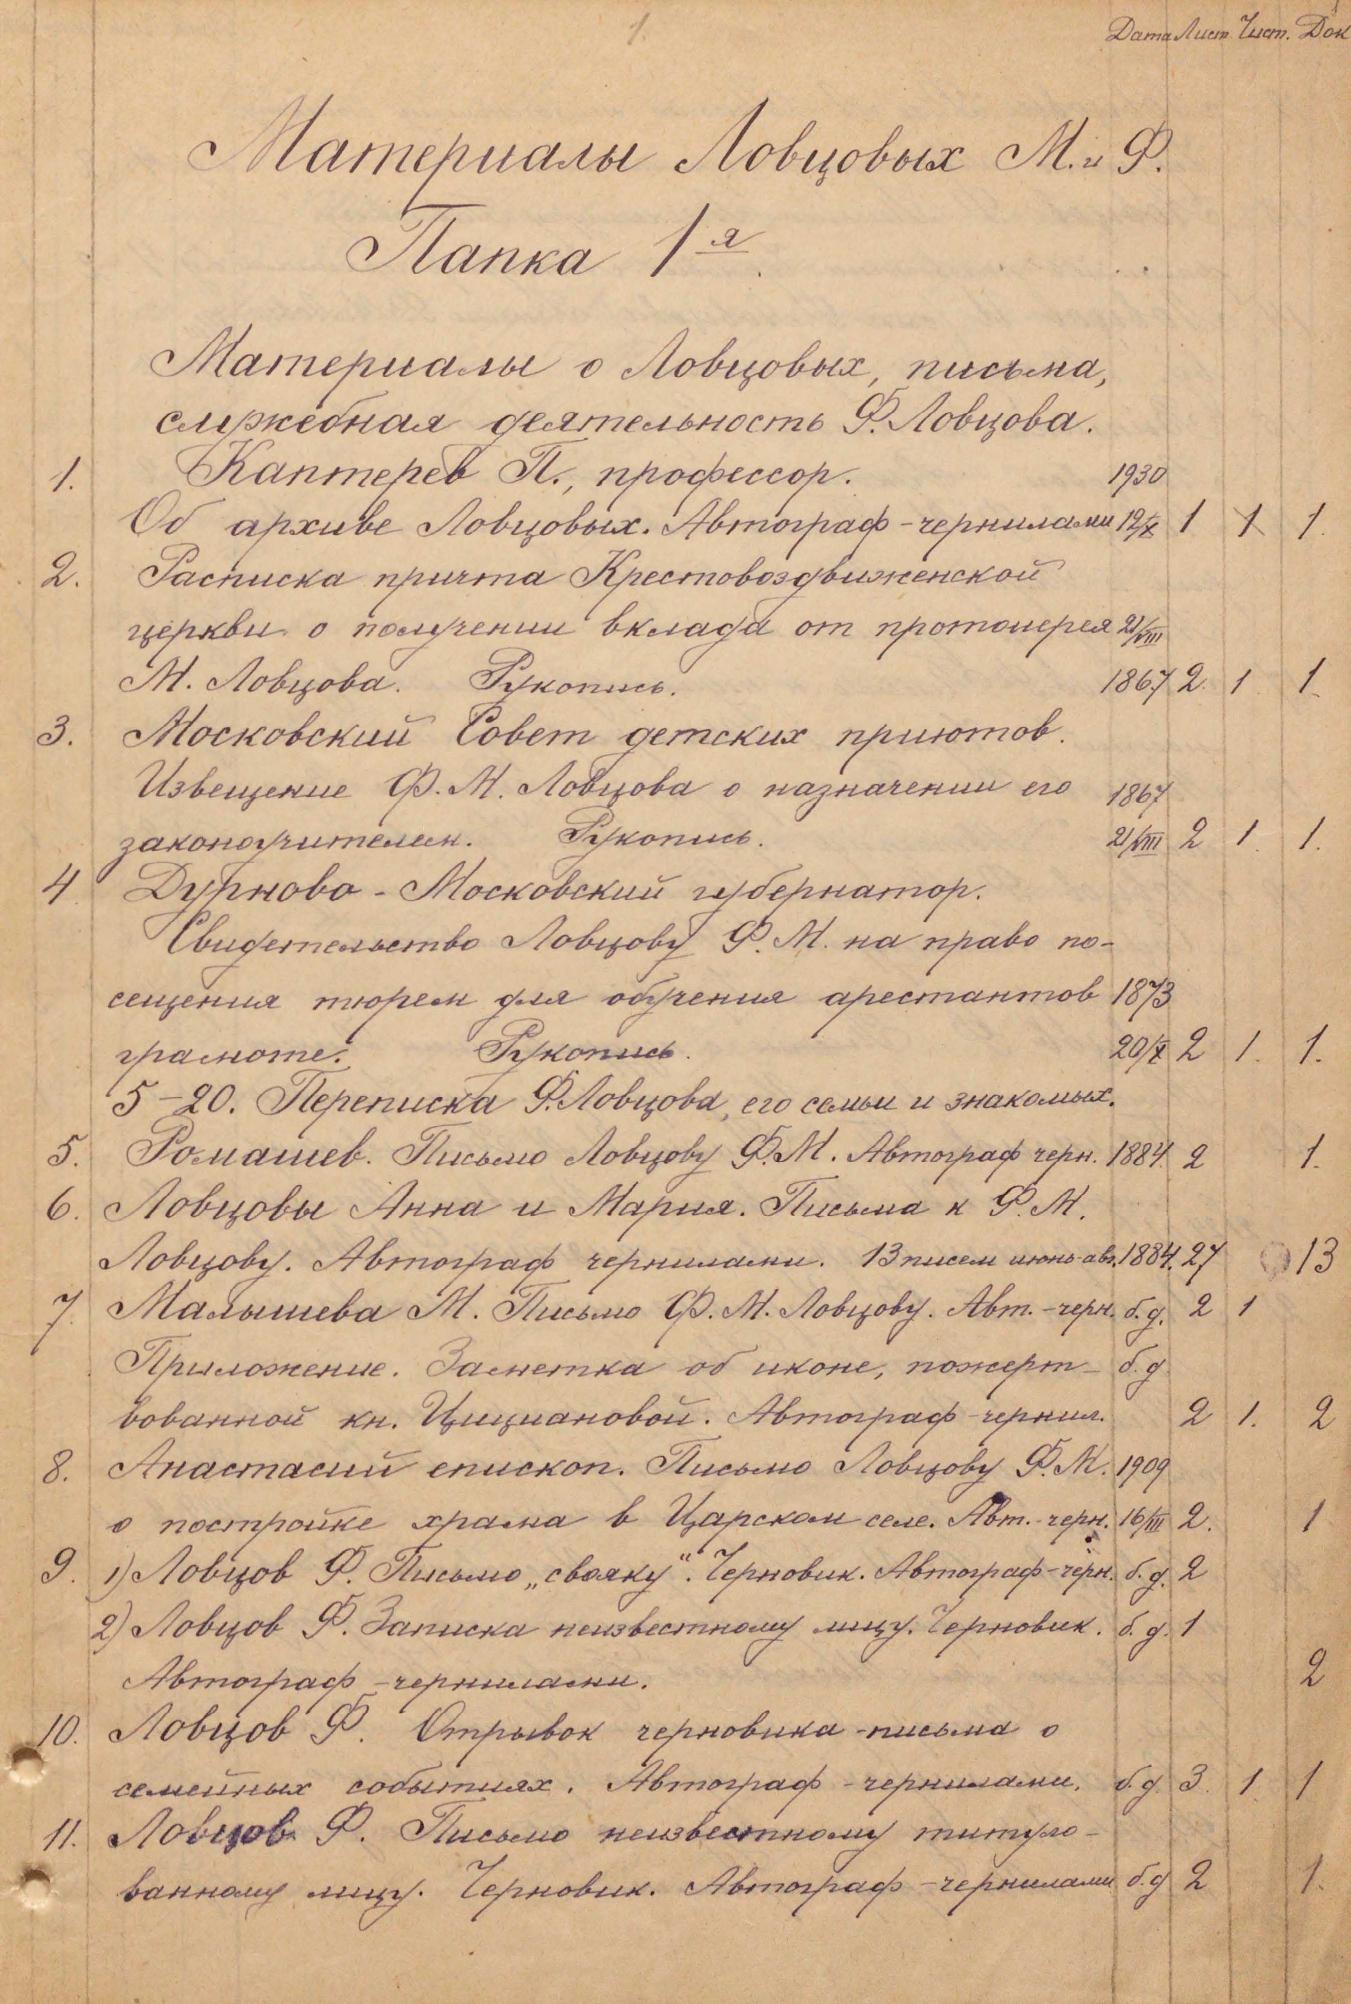 1.
Дата Лист. Чист. Док
Материалы Ловцовых М. и Ф.
Папка 1я
Материалы о Ловцовых, письма,
служебная деятельность Ф. Ловцова.
1. Каптерев П., профессор. 1930
Об архиве Ловцовых. Автограф - чернилами 12/X 1 1 1.
2. Расписка причта Крестовоздвиженской
церкви о получении вклада от протоиерея 21/VIII
М. Ловцова. Рукопись. 1867 2. 1. 1.
3. Московский Совет детских приютов.
Извещение Ф. М. Ловцова о назначении его 1867
законоучителем. Рукопись. 21/VIII 2 1. 1.
4. Дурново - Московский губернатор.
Свидетельство Ловцову Ф. М. на право по-
сещения тюрем для обучения арестантов 1873
грамоте. Рукопись. 20/X 2 1. 1.
5-20. Переписка Ф. Ловцова, его семьи и знакомых.
5. Ромашев. Письмо Ловцову Ф. М. Автограф черн. 1884. 2 1.
6. Ловцовы Анна и Мария. Письма к Ф. М.
Ловцову. Автограф чернилами. 13 писем июнь-авг. 1884. 27 13
7. Малышева М. Письмо Ф. М. Ловцову. Авт. - черн. б. д. 2 1
Приложение. Заметка об иконе, пожерт- б. д
вованной кн. Цициановой. Автограф - чернил. 2 1. 2
8. Анастасий епископ. Письмо Ловцову Ф. М. 1909
о постройке храма в Царском селе. Авт. - черн. 16/III 2. 1
9. 1) Ловцов Ф. Письмо „свояку“. Черновик. Автограф - черн. б. д. 2
2) Ловцов Ф. Записка неизвестному лицу. Черновик. б. д. 1
Автограф - чернилами. 2
10. Ловцов Ф. Отрывок черновика - письма о
семейных событиях. Автограф - чернилами. б. д. 3. 1. 1
11. Ловцов Ф. Письмо неизвестному титуло-
ванному лицу. Черновик. Автограф - чернилами б. д 2 1.